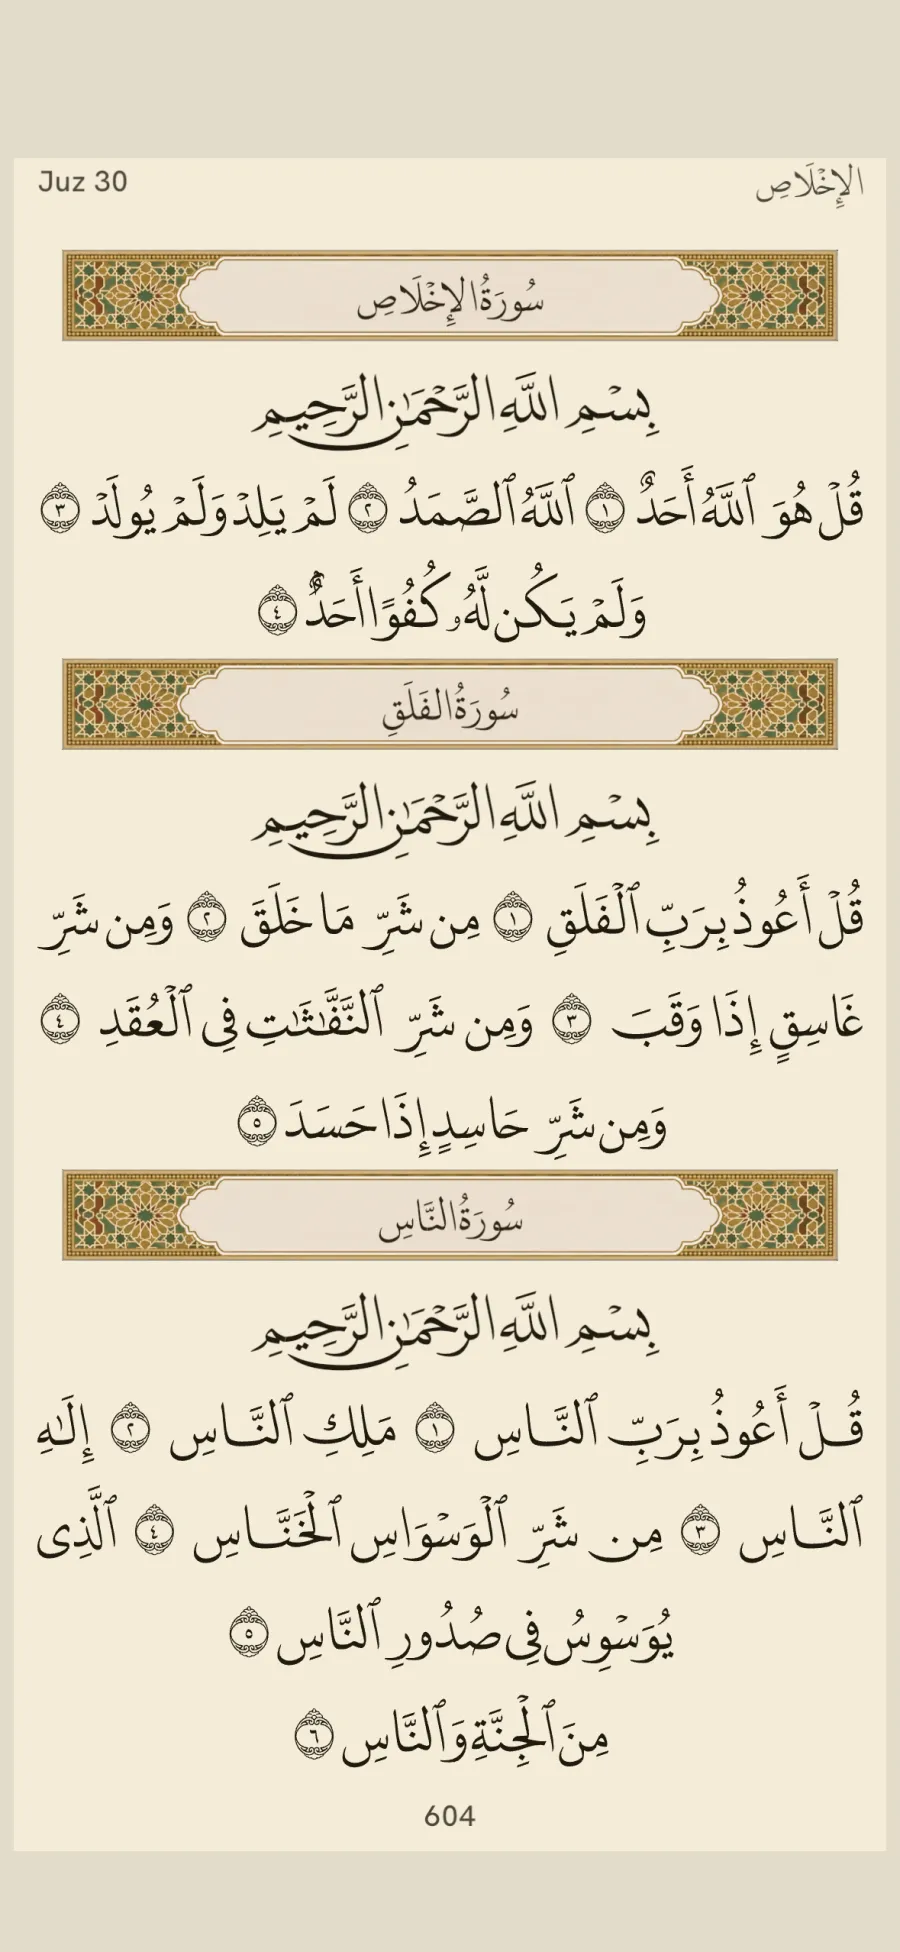 Juz 30
الإِخْلَاصِ
سُورَةُ الإِخْلَاصِ
بِسْمِ اللَّهِ الرَّحْمَٰنِ الرَّحِيمِ
قُلْ هُوَ ٱللَّهُ أَحَدٌ ١ ٱللَّهُ ٱلصَّمَدُ ٢ لَمْ يَلِدْ وَلَمْ يُولَدْ ٣
وَلَمْ يَكُن لَّهُۥ كُفُوًا أَحَدٌۢ ٤
سُورَةُ الفَلَقِ
بِسْمِ اللَّهِ الرَّحْمَٰنِ الرَّحِيمِ
قُلْ أَعُوذُ بِرَبِّ ٱلْفَلَقِ ١ مِن شَرِّ مَا خَلَقَ ٢ وَمِن شَرِّ
غَاسِقٍ إِذَا وَقَبَ ٣ وَمِن شَرِّ ٱلنَّفَّٰثَٰتِ فِى ٱلْعُقَدِ ٤
وَمِن شَرِّ حَاسِدٍ إِذَا حَسَدَ ٥
سُورَةُ النَّاسِ
بِسْمِ اللَّهِ الرَّحْمَٰنِ الرَّحِيمِ
قُلْ أَعُوذُ بِرَبِّ ٱلنَّاسِ ١ مَلِكِ ٱلنَّاسِ ٢ إِلَٰهِ
ٱلنَّاسِ ٣ مِن شَرِّ ٱلْوَسْوَاسِ ٱلْخَنَّاسِ ٤ ٱلَّذِى
يُوَسْوِسُ فِى صُدُورِ ٱلنَّاسِ ٥
مِنَ ٱلْجِنَّةِ وَٱلنَّاسِ ٦
604